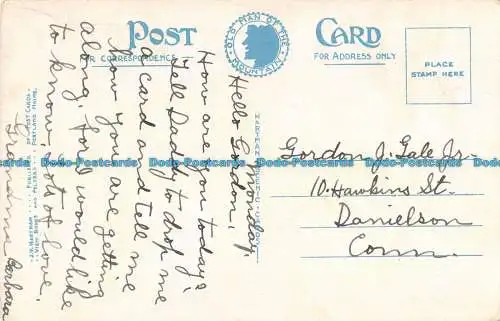 POST CARD
FOR CORRESPONDENCE
FOR ADDRESS ONLY
OLD MAN OF THE MOUNTAIN
PLACE
STAMP HERE
Monday,
Hello Gordon,
How are you today?
Tell Daddy to drop me
a card and tell me
how you are getting
along. I'd would like
to know. Lots of love,
Grandma Barbara
Gordon J. Gale Jr.
10 Hawkins St.
Danielson
Conn.
J.V. HARTMAN PUBLISHER OF POST CARDS
VIEW BOOKS AND FOLDERS PORTLAND MAINE.
Dodo-Postcards Dodo-Postcards Dodo-Postcards Dodo-Postcards Dodo-Postcards Dodo-Postcards